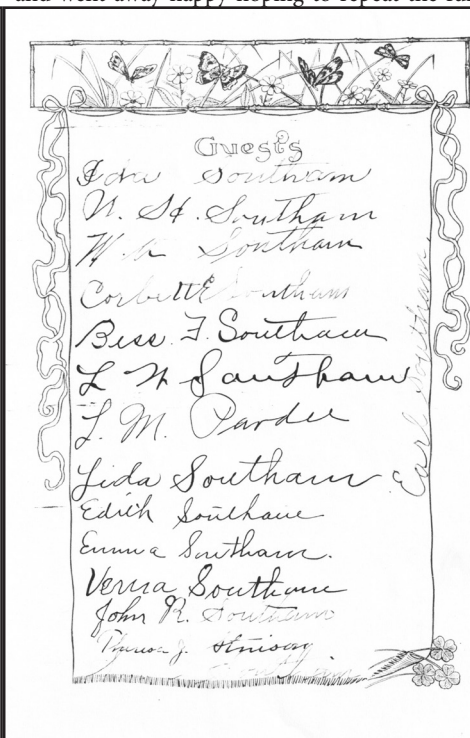 and went away happy hoping to repeat the
Guests
Southam
N. H. Southam
W Southam
Corbett E Southam
Bess F. Southam
L N Southam
L. M. Pardee
Lida Southam
Edith Southam
Emma Southam.
Verna Southam
John R. Southam
Theresa J.
Earl Southam